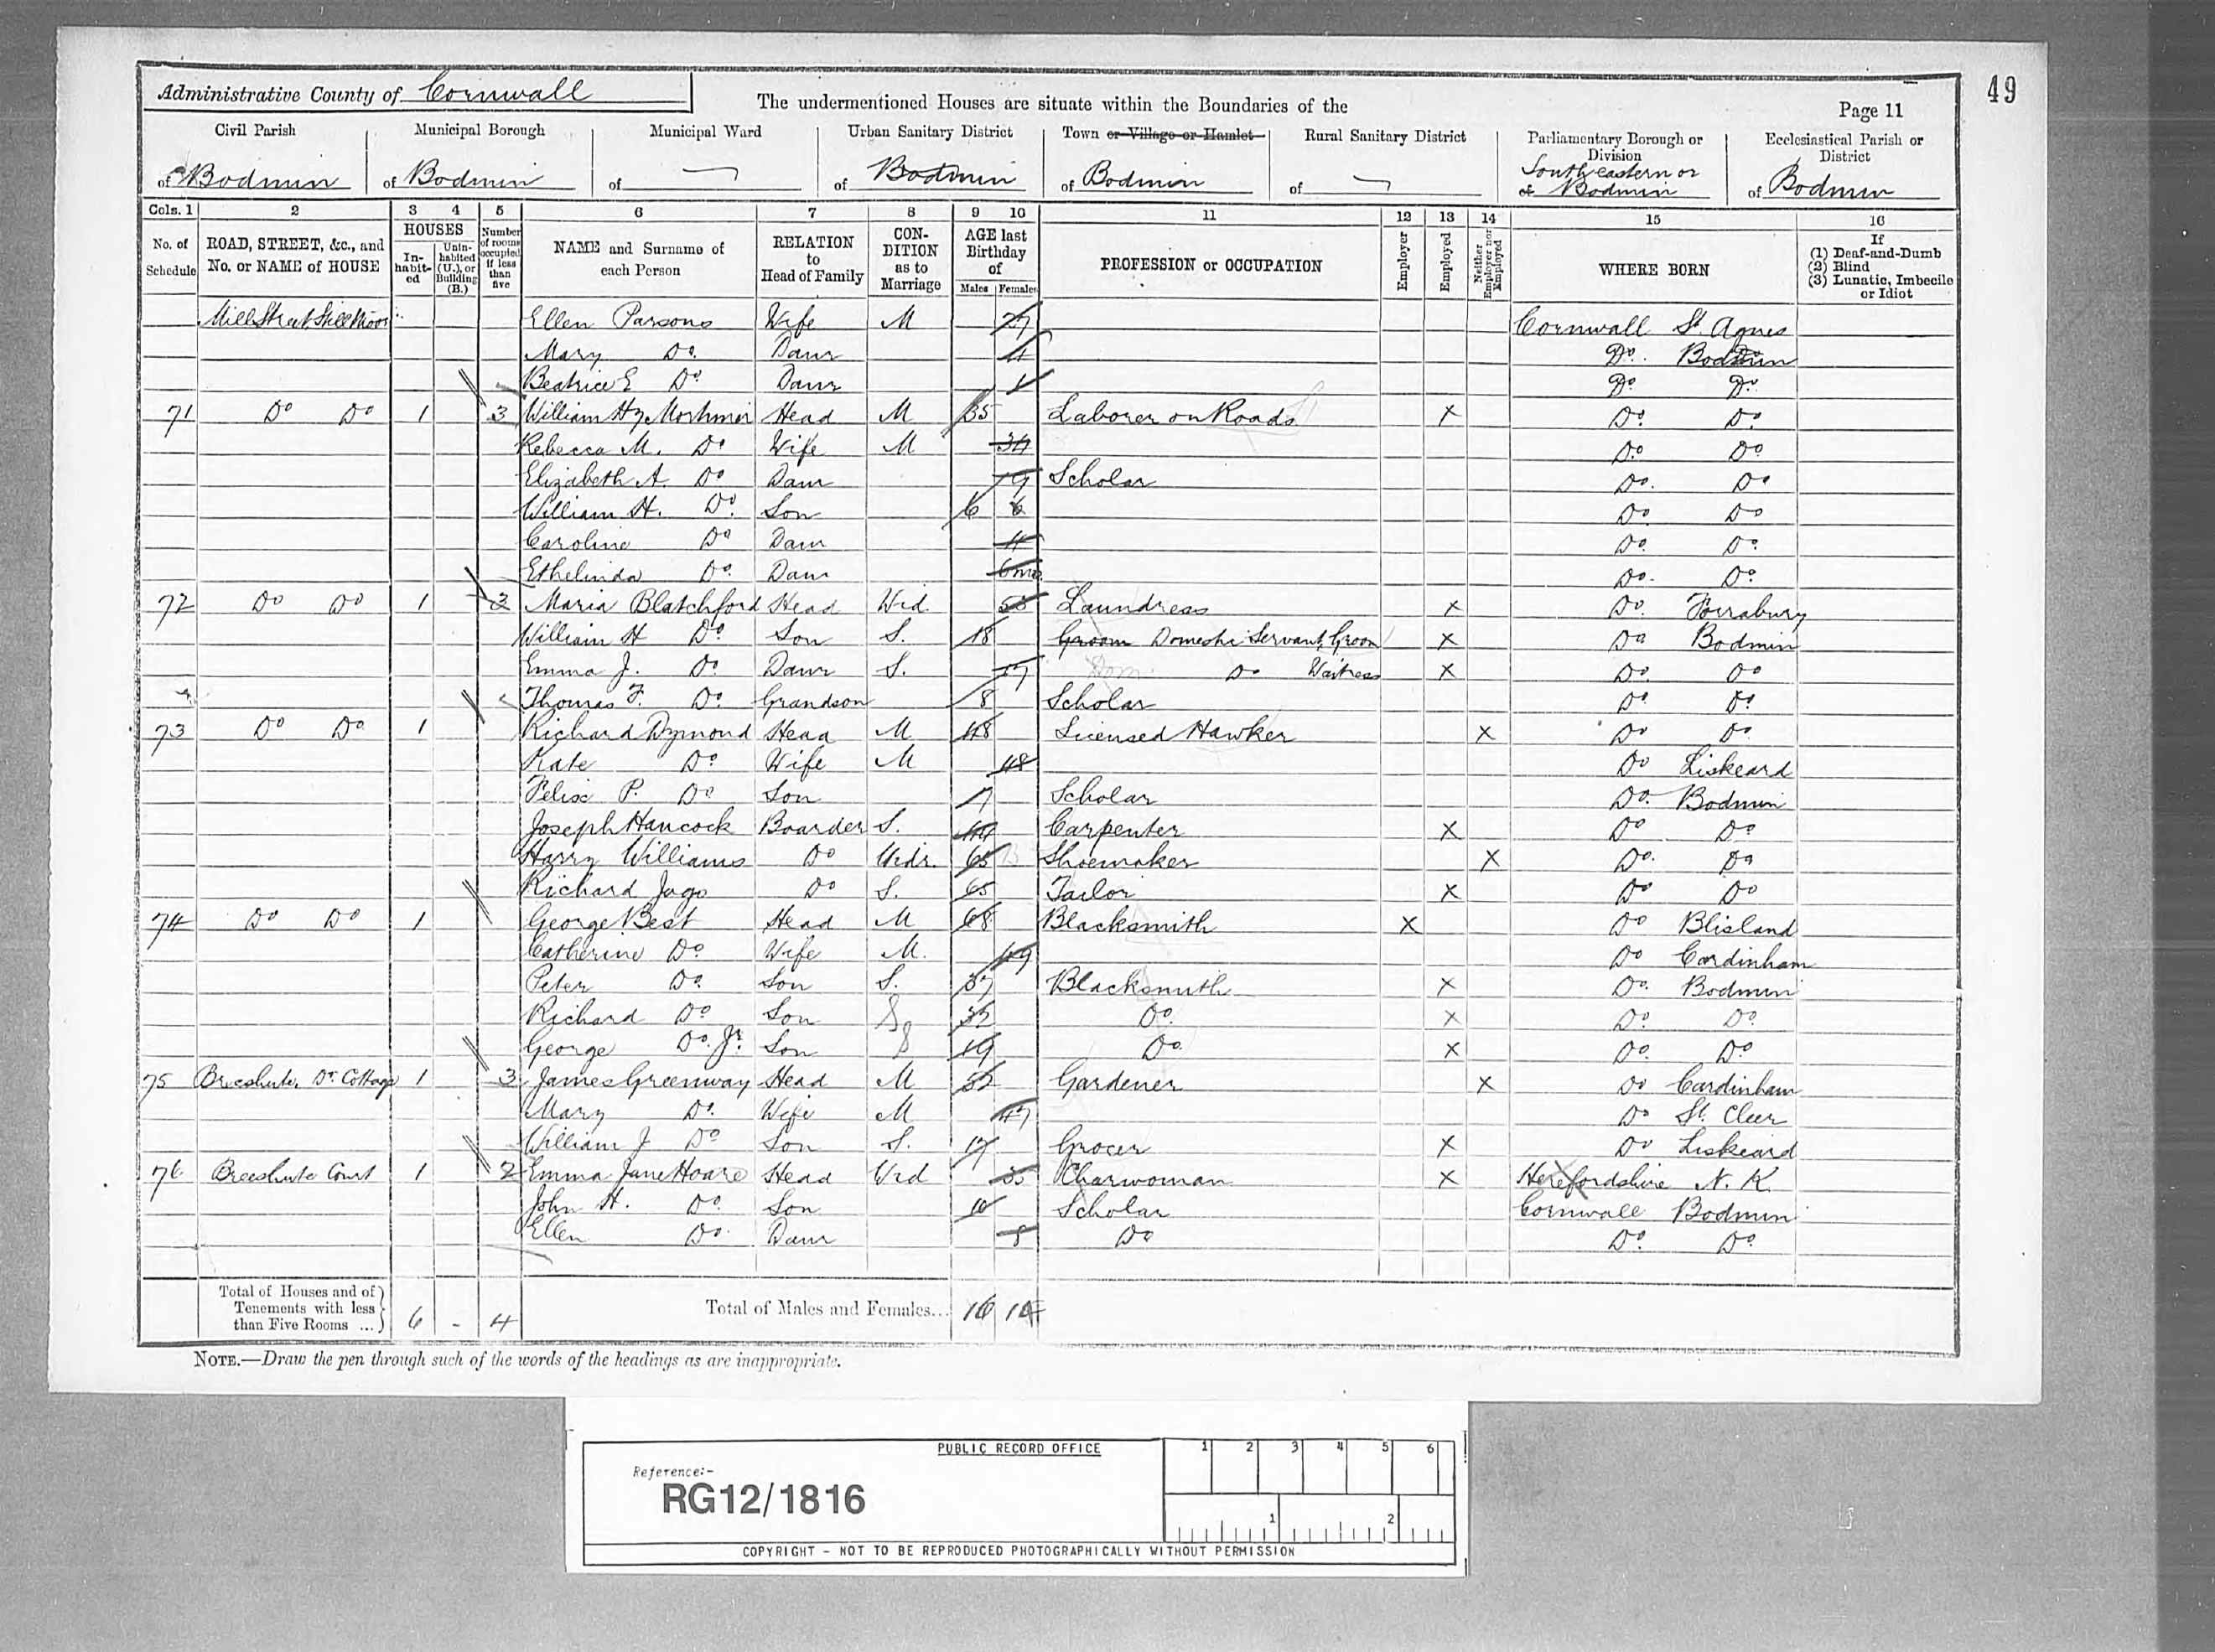 49
Administrative County of Cornwall
The undermentioned Houses are situate within the Boundaries of the
Page 11
Civil Parish of Bodmin
Municipal Borough of Bodmin
Municipal Ward of
Urban Sanitary District of Bodmin
Town or Village or Hamlet of Bodmin
Rural Sanitary District of
Parliamentary Borough or Division of South eastern or Bodmin
Ecclesiastical Parish or District of Bodmin
Cols. 1 2 3 4 5 6 7 8 9 10 11 12 13 14 15 16
No. of Schedule
ROAD, STREET, &c., and No. or NAME of HOUSE
HOUSES
In-habit-ed
Unin-habited (U.), or Building (B.)
Number of rooms occupied if less than five
NAME and Surname of each Person
RELATION to Head of Family
CON-DITION as to Marriage
AGE last Birthday of
Males Females
PROFESSION or OCCUPATION
Employer
Employed
Neither Employer nor Employed
WHERE BORN
If (1) Deaf-and-Dumb (2) Blind (3) Lunatic, Imbecile or Idiot
Mill Street Ellen Parsons Wife M 27 Cornwall St. Agnes
Mary Do. Daur 4 Do. Bodmin
Beatrice E Do Daur 1 Do Do.
71 Do Do 1 3 William Hy Head M 35 Laborer on Roads X Do. Do.
Rebecca M. Do Wife M 34 Do. Do
Elizabeth A. Do Daur 9 Scholar Do. Do
William H. Do. Son 6 6 Do. Do
Caroline Do Daur 4 Do. Do.
Ethelinda Do. Daur 6 mo. Do. Do.
72 Do Do 1 3 Maria Blatchford Head Wid. Laundress X Do. Forrabury
William H Do Son S. 18 Groom Domestic Servant, Groom X Do Bodmin
Emma J. Do. Daur S. 17 Dom. Do Waitress X Do. Do
Thomas F. Do. Grandson 8 Scholar Do. Do.
73 Do Do. 1 Richard Dymond Head M 48 Licensed Hawker X Do Do.
Kate Do. Wife M 48 Do Liskeard
Felix P. Do Son 7 Scholar Do. Bodmin
Joseph Hancock Boarder S. Carpenter X Do Do.
Harry Williams Do Widr. 65 Shoemaker X Do. Do
Richard Jago Do S. 65 Tailor X Do Do
74 Do Do 1 George Best Head M 68 Blacksmith X Do Blisland
Catherine Do. Wife M. Do Cardinham
Peter Do. Son S. 37 Blacksmith X Do. Bodmin
Richard Do Son S 32 Do. X Do. Do.
George Do. Jr. Son S 19 Do. X Do. Do
75 Cottage 1 3 James Greenway Head M 52 Gardener X Do Cardinham
Mary Do. Wife M 47 Do St. Cleer
William J Do Son S. 17 Grocer X Do Liskeard
76 Breeshute Court 1 2 Emma Jane Hoare Head Wid 35 Charwoman X Herefordshire N. K.
John H. Do. Son 10 Scholar Cornwall Bodmin
Ellen Do. Daur 8 Do Do. Do.
Total of Houses and of Tenements with less than Five Rooms ... 6 - 4
Total of Males and Females... 16 14
NOTE.—Draw the pen through such of the words of the headings as are inappropriate.
PUBLIC RECORD OFFICE
1 2 3 4 5 6
Reference:-
RG12/1816
1 2
COPYRIGHT - NOT TO BE REPRODUCED PHOTOGRAPHICALLY WITHOUT PERMISSION